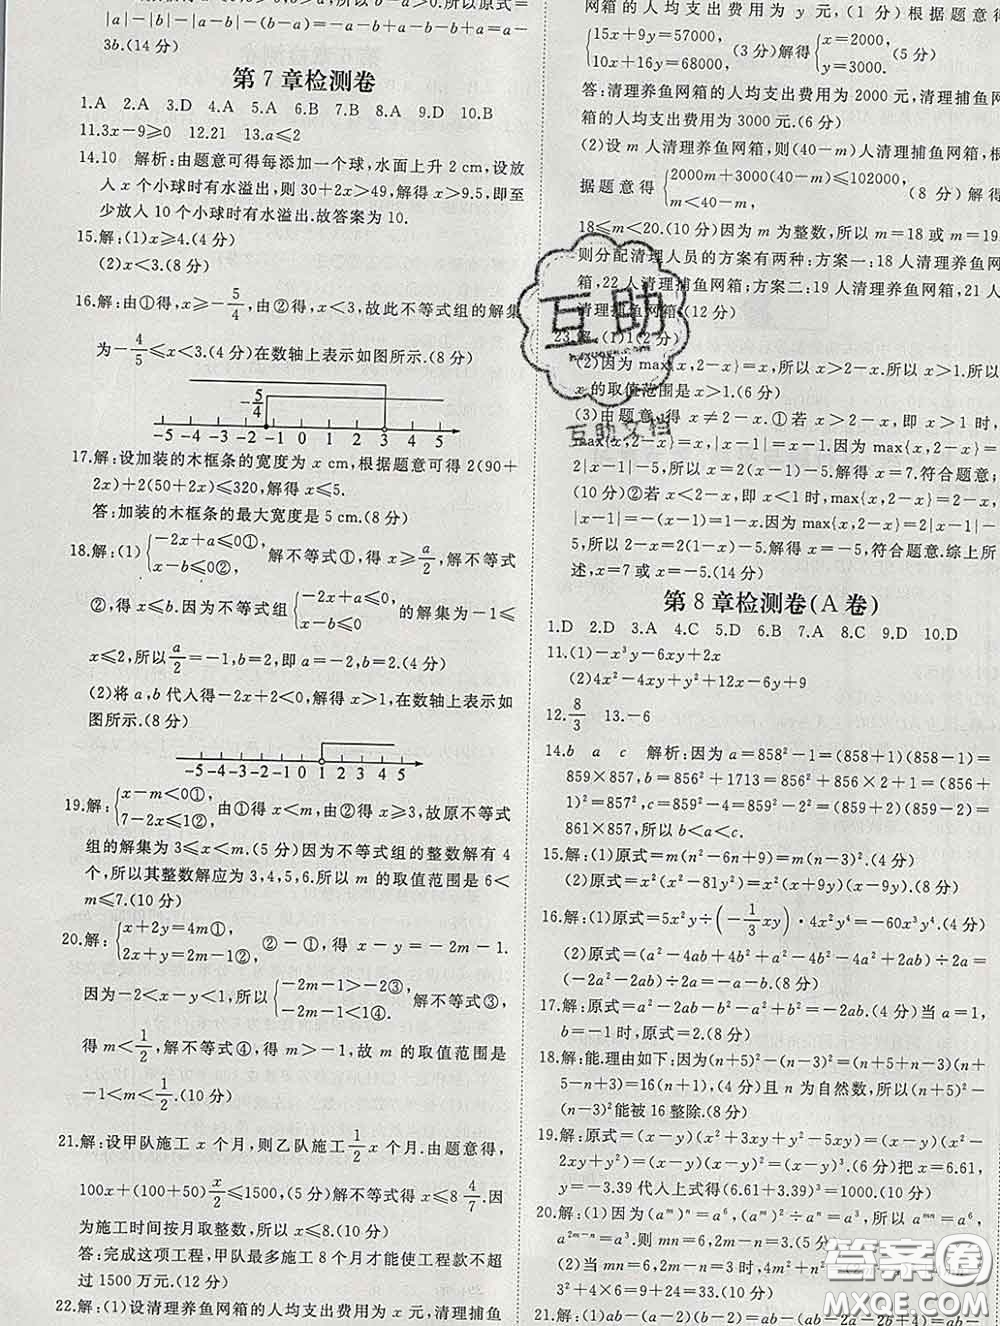 |a|−|a+b|−|b−a|=−a−(−a−b)−(b−a)=−a−b+a+b+a=a−
3b.(14分)
第7章检测卷
1.A 2.A 3.D 4.A 5.A 6.B 7.B 8.A 9.D 10.B
11.3x−9≥0 12.21 13.a≤2
14.10 解析:由题意可得每添加一个球,水面上升2 cm,设放
人x个小球时有水溢出,则30+2x>49,解得x>9.5,即至
少放人10个小球时有水溢出.故答案为10.
15.解:(1)x≥4.(4分)
(2)x<3.(8分)
16.解:由①得,x≥−5/4,由②得,x<3,故此不等式组的解集
为−4/5≤x<3.(4分)在数轴上表示如图所示.(8分)
−5/4
−5 −4 −3 −2 −1 0 1 2 3 4 5
17.解:设加装的木框条的宽度为x cm,根据题意可得2(90+
2x)+2(50+2x)≤320,解得x≤5.
答:加装的木框条的最大宽度是5 cm.(8分)
18.解:(1){−2x+a≤0①, x−b≤0②, 解不等式①,得x≥a/2,解不等式
②,得x≤b.因为不等式组{−2x+a≤0, x−b≤0 的解集为−1≤
x≤2,所以a/2=−1,b=2,即a=−2,b=2.(4分)
(2)将a,b代人得−2x+2<0,解得x>1,在数轴上表示如
图所示.(8分)
−5 −4 −3 −2 −1 0 1 2 3 4 5
19.解:{x−m<0①, 7−2x≤1②, 由①得x<m,由②得x≥3,故原不等式
组的解集为3≤x<m.(5分)因为不等式组的整数解有4
个,所以其整数解应为3,4,5,6.所以m的取值范围是6<
m≤7.(10分)
20.解:{x+2y=4m①, 2x+y=2m−1②, ②−①,得x−y=−2m−1.
因为−2<x−y<1,所以{−2m−1>−2③, −2m−1<1④. 解不等式③,
得m<1/2,解不等式④,得m>−1,故m的取值范围是
−1<m<1/2.(10分)
21.解:设甲队施工x个月,则乙队施工1/2 x个月.由题意得,
100x+(100+50)x/2≤1500,(5分)解不等式得x≤8 4/7.因
为施工时间按月取整数,所以x≤8.(10分)
答:完成这项工程,甲队最多施工8个月才能使工程款不超
过1500万元.(12分)
22.解:(1)设清理养鱼网箱的人均支出费用为x元,清理捕鱼
网箱的人均支出费用为y元,(1分)根据题意得
{15x+9y=57000, 10x+16y=68000, (3分)解得{x=2000, y=3000. (5分)
答:清理养鱼网箱的人均支出费用为2000元,清理捕鱼网
箱的人均支出费用为3000元.(6分)
(2)设m人清理养鱼网箱,则(40−m)人清理捕鱼网箱,根
据题意得{2000m+3000(40−m)≤102000, m<40−m, (8分)解得
18≤m<20.(10分)因为m为整数,所以m=18或m=19.
则分配清理人员的方案有两种:方案一:18人清理养鱼网
箱,22人清理捕鱼网箱;方案二:19人清理养鱼网箱,21人
清理捕鱼网箱.(12分)
23.解:(1)1(2分)
(2)因为max{x,2−x}=x,所以x>2−x.所以x>1.所以
x的取值范围是x>1.(6分)
(3)由题意,得x≠2−x.①若x>2−x,即x>1时,
max{x,2−x}=x,|x−1|=x−1.因为max{x,2−x}=
2|x−1|−5,所以x=2(x−1)−5.解得x=7,符合题意;
(10分)②若x<2−x,即x<1时,max{x,2−x}=2−x,
|x−1|=−(x−1)=1−x.因为max{x,2−x}=2|x−1|−
5,所以2−x=2(1−x)−5.解得x=−5,符合题意.综上所
述,x=7或x=−5.(14分)
第8章检测卷(A卷)
1.D 2.D 3.A 4.C 5.D 6.B 7.A 8.C 9.D 10.D
11.(1)−x³y−6xy+2x
(2)4x²−4xy+y²+12x−6y+9
12.8/3 13.−6
14.b a c 解析:因为a=858²−1=(858+1)(858−1)=
859×857,b=856²+1713=856²+2×856+1=(856+
1)²=857²,c=859²−4=859²−2²=(859+2)(859−2)=
861×857,所以b<a<c.
15.解:(1)原式=m(n²−6n+9)=m(n−3)².(4分)
(2)原式=x²(x²−81y²)=x²(x+9y)(x−9y).(8分)
16.解:(1)原式=5x²y÷(−1/3 xy)·4x²y⁴=−60x³y⁴.(4分)
(2)原式=(a²−4ab+4b²+a²−4b²−4a²+2ab)÷2a=
(−2a²−2ab)÷2a=−a−b.(8分)
17.解:原式=a²−2ab−b²−a²+b²=−2ab.(4分)当a=1,
b=−1时,原式=2.(8分)
18.解:能.理由如下:因为(n+5)²−(n−3)²=(n+5+n−3)(n+
5−n+3)=16(n+1),(4分)且n为自然数,所以(n+5)²−
(n−3)²能被16整除.(8分)
19.解:原式=(x−y)(x²+3xy+y²−5xy)=(x−y)(x²−
2xy+y²)=(x−y)(x−y)²=(x−y)³.(6分)把x=6.61,
y=−3.39代人上式得(6.61+3.39)³=1000.(10分)
20.解:(1)因为(aᵐ)ⁿ=a⁶,(aᵐ)²÷aⁿ=a³,所以aᵐⁿ=a⁶,
a²ᵐ⁻ⁿ=a³.所以mn=6,2m−n=3.(6分)
(2)当mn=6,2m−n=3时,
3²+4×6=9+24=33.(10分)
21.解:(1)ab−(a−2)(b−2)=ab−(ab−2a−2b+
互助
互助文档
答案圈
MXQE.COM